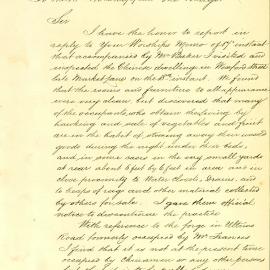 Sir
I have the honor to report in
reply to Your Worships Memo of 17th instant
that accompanied by Mr Baker I visited and
inspected the Chinese dwelling in Wexford Street
late Market place on the 18th instant. We found
that the rooms and furniture to all appearance
were very clean, but discovered that many
of the occupants who obtain their living by
hawking and sale of vegetables and fruit
are in the habit of stowing away their unsold
goods during the night under their beds,
and in some cases in the very small yards
at rear about 8 feet by 6 feet in area and in
close proximity to Water Closets, Drains, and
to heaps of rags and other material collected
by others for sale. I gave them official
notice to discontinue the practice
With reference to the forge in Ultimo
Road formerly occupied by Mr Frances
I find that it is not at the present time
occupied by Chinamen or any other person